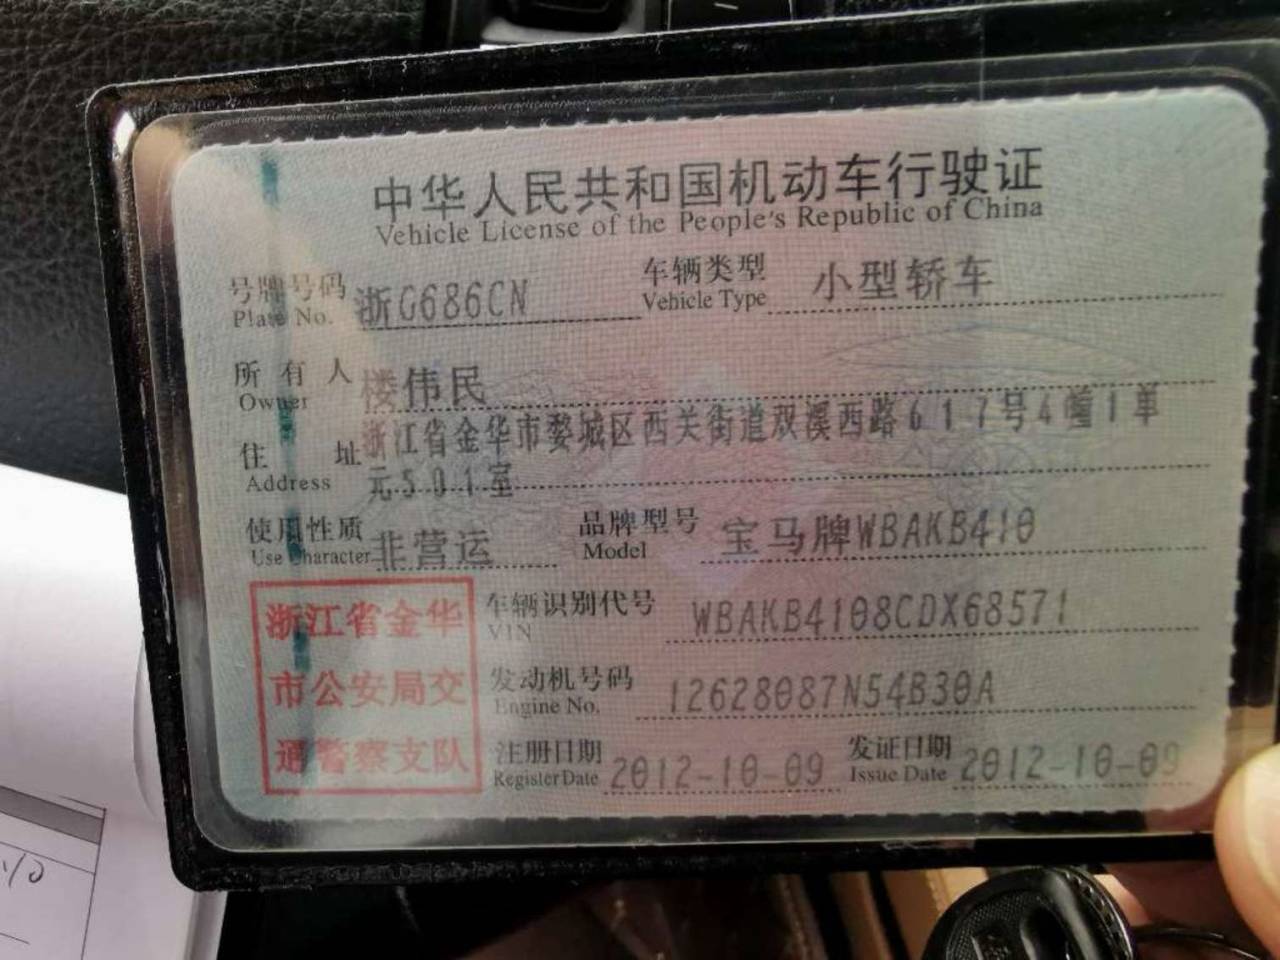 中华人民共和国机动车行驶证
Vehicle License of the People's Republic of China
号牌号码 浙G686CN 车辆类型 小型轿车
Plate No. Vehicle Type
所有人 楼伟民
Owner
住址 浙江省金华市婺城区西关街道双溪西路617号4幢1单
Address 元501室
使用性质 非营运 品牌型号 宝马牌WBAKB410
Use Character Model
浙江省金华
市公安局交
通警察支队
车辆识别代号 WBAKB4108CDX68571
VIN
发动机号码 12628087N54B30A
Engine No.
注册日期 2012-10-09 发证日期 2012-10-09
Register Date Issue Date